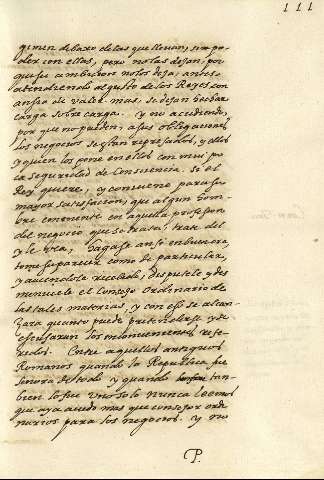 111
gimen debaxo de las que llevan, sin po-
der con ellas, pero no las dejan, por
que su ambicion no los deja, antes
atendiendo al gusto de los Reyes con
ansia de valer mas, se dejan hechar
carga sobre carga. y no acudiendo,
por que no pueden, a sus obligaciones
los negocios se estan represados, y ellos
y quien los pone en ellos con mui po
ca seguridad de Consciencia. si el
Rey quiere, y conviene para su
mayor satisfacion, que algun hom-
bre eminente en aquella profesion
del negocio que se trata, trate del
y le vea, hagase ansi enbuenora
tome su parecer como de particular,
y aviendole recebido, dispute le y des
menucele el Consejo Ordinario de
las tales materias, y con esso se alcan
zara quanto puede pretenderse y se
escusaran los inconvenientes refe-
ridos. Entre aquellos antiguos
Romanos quando la Republica fue
señora del todo y quando tan
bien lo fue uno solo nunca leemos
que aya avido mas que consejos ordi
narios para los negocios. y no
P.